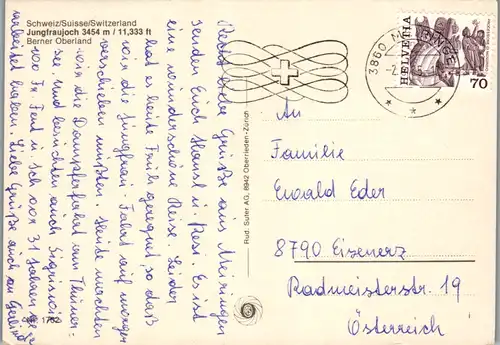 Schweiz/Suisse/Switzerland
Jungfraujoch 3454 m / 11,333 ft
Berner Oberland
Recht liebe Grüße aus Meiringen
senden Euch Hansl u. Resi. Es ist
eine wunderschöne Reise. Leider
hat es heute Früh geregnet so daß
wir die Jungfrau Fahrt auf morgen
verschieben mußten. Heute machten
wir die Dampferfahrt am Thuner-
see und besichten auch Sigriswil
wo Fr. u. ich vor 31 Jahren ge
arbeitet haben. Liebe Grüße auch an Gerlinde
1762
Rud. Suter AG, 8942 Oberrieden-Zürich
3860
HELVETIA
70
An
Familie
Ewald Eder
8790 Eisenerz
Radmeisterstr. 19
Österreich